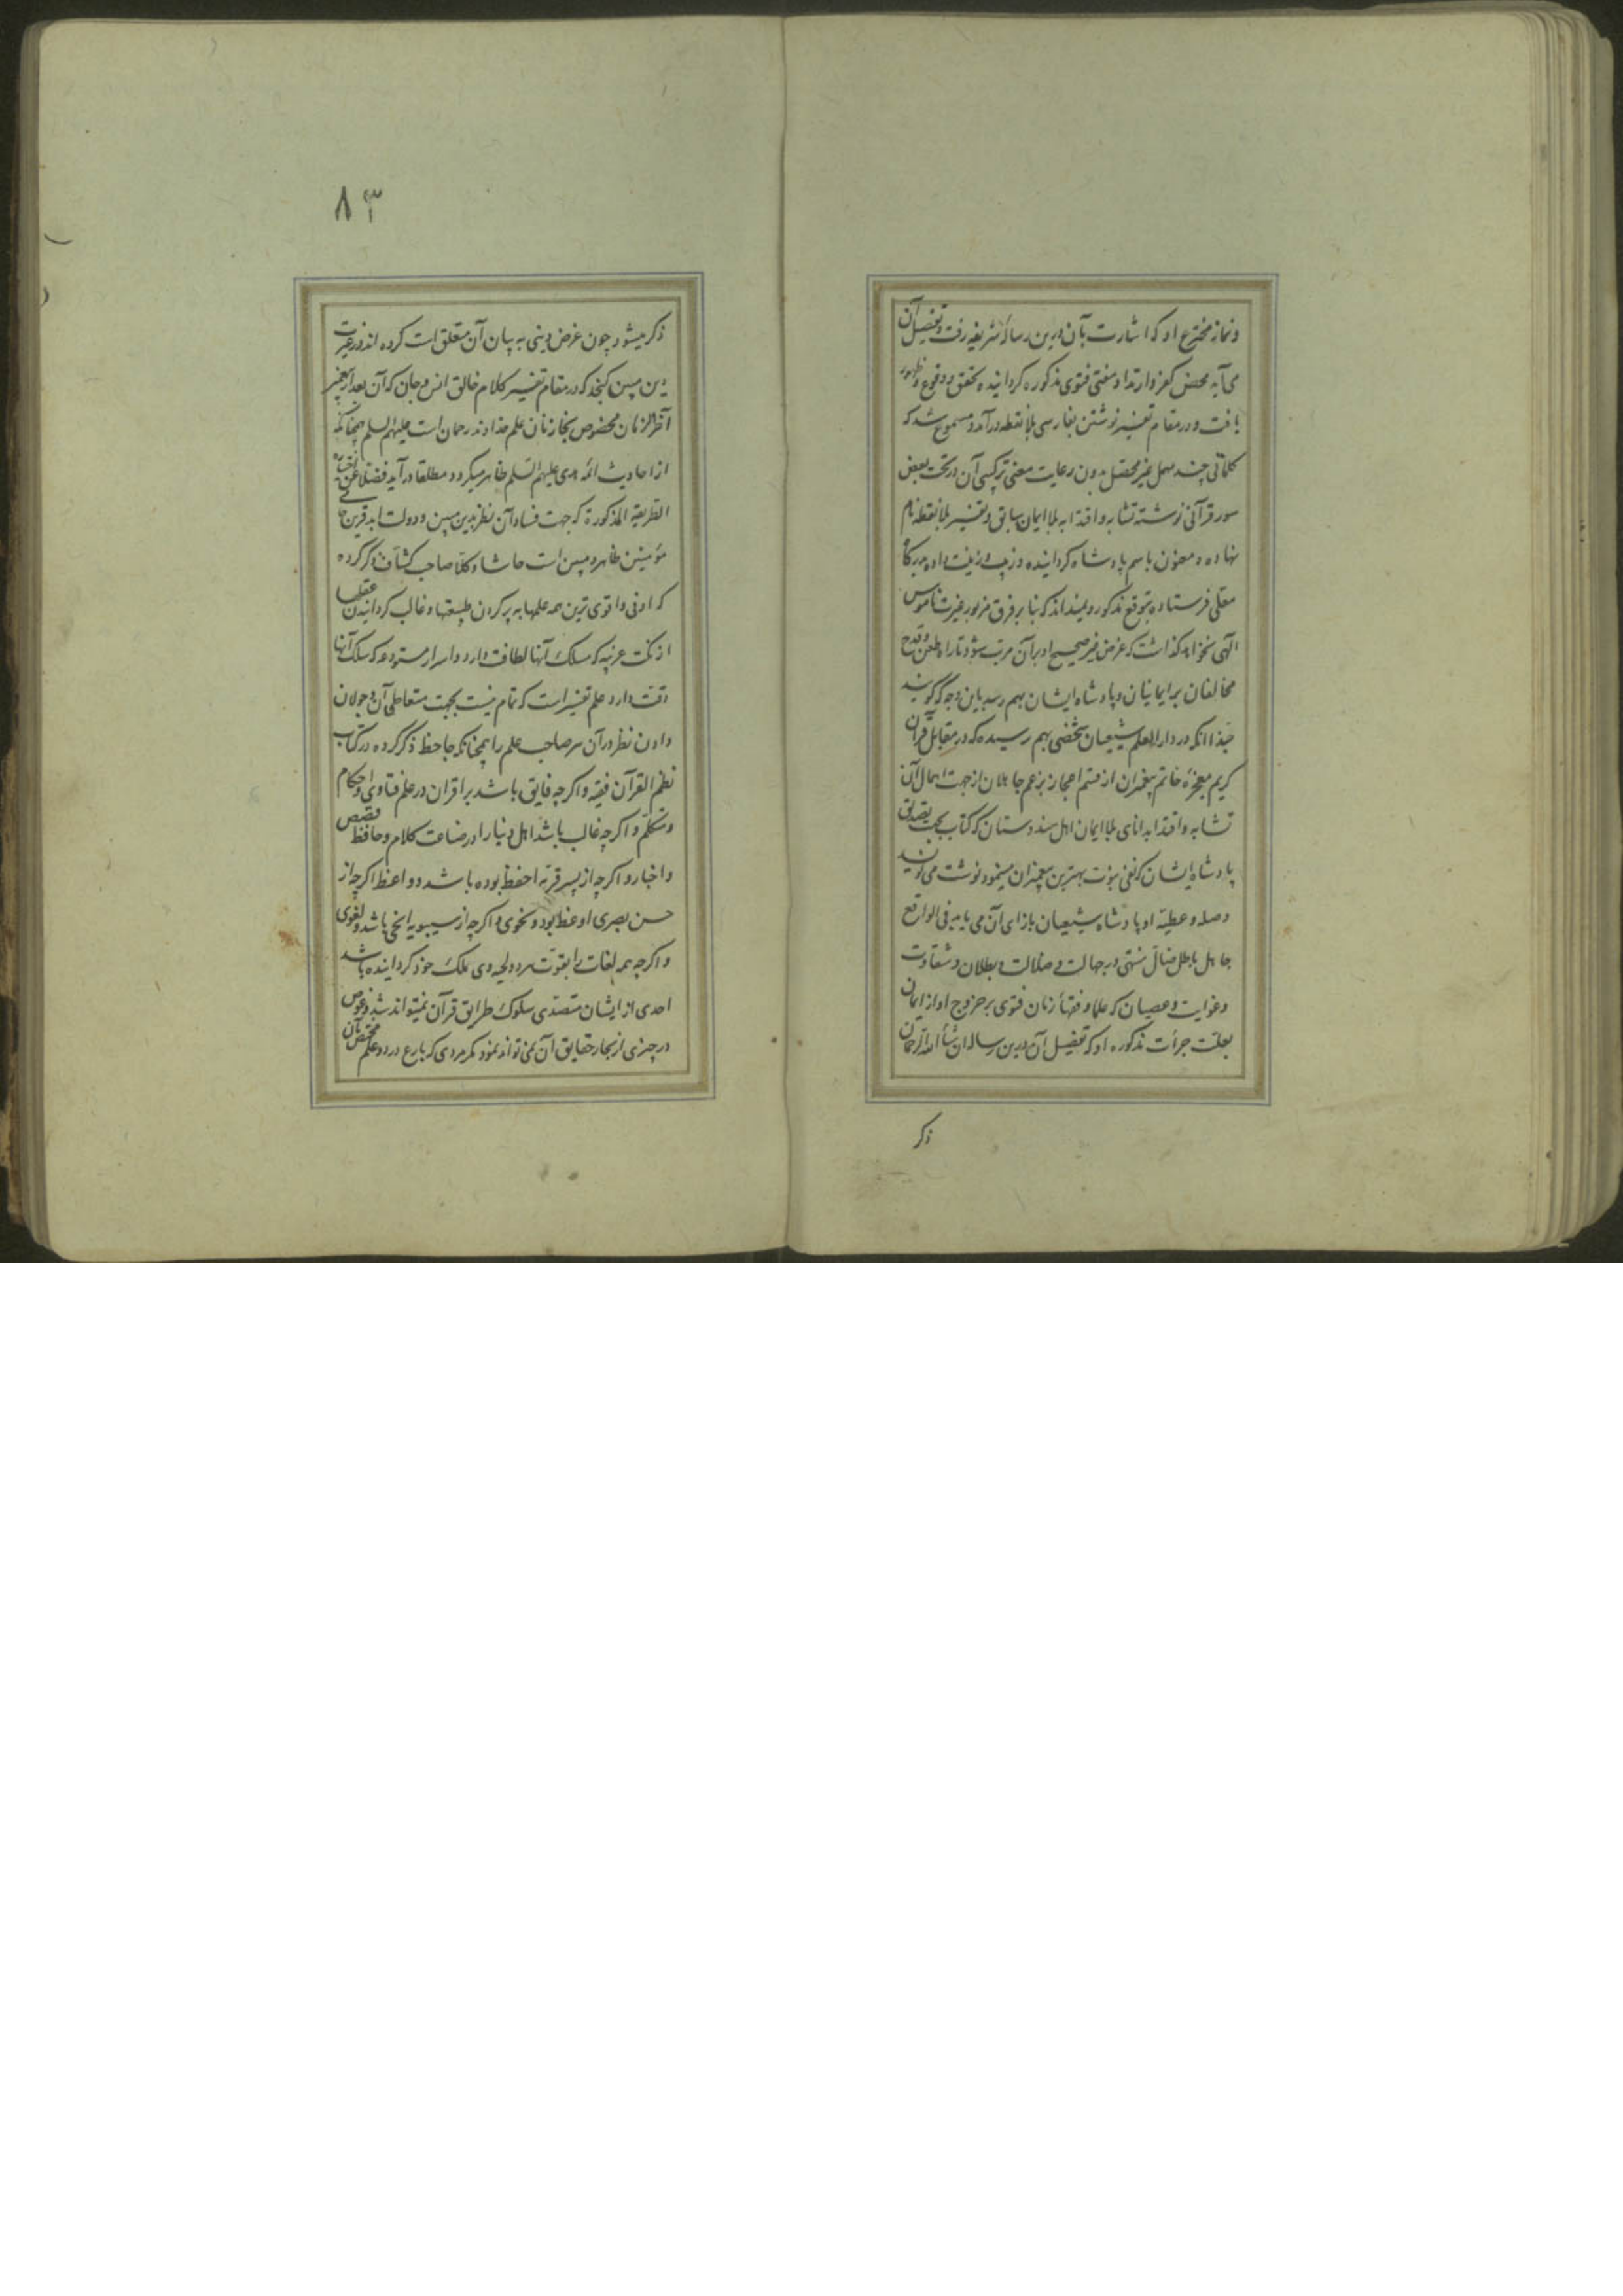 و نماز مخترع او که اشارت بآن درین رسالهٔ شریفه رفت و تفصیل آن
می آید محض کفر و ارتداد مفتی فتوی مذکوره کردانیده تحقق و وقوع و ظهور
یافت و در مقام تفسیر نوشتن بفارسی بلا نقطه درآمد و مسموع شد که
کلماتی چند مهمل غیر محصل بدون رعایت معنی ترکیبی آن در تحت بعض
سور قرآنی نوشته تشابه و اقتدا به بلا ایمان سابق و تفسیر بلا نقطه نام
نهاده و معنون باسم پادشاه کردانیده و زیب و زینت داده بدرکاه
معلی فرستاده بتوقع مذکور و نمیداند که بنا بر فرق مزبور غیرت ناموس
الهی نخواهد کذاشت که غرض غیر صحیح او بر آن مرتب شود تا راه طعن و قدح
مخالفان بر ایمانیان و پادشاه ایشان بهم رسد باین وجه که کویند
حبذا انکه در دار العلم شیعیان شخصی بهم رسیده که در مقابل قرآن
کریم معجزهٔ خاتم پیغمبران از قسم اعجاز بزعم جاهلان از جهت اهمال آن
تشابه و اقتدا بدانای بلا ایمان اهل هندوستان که کتاب بجهت تصدیق
پادشاه ایشان که نفی نبوت بهترین پیغمبران مینمود نوشت می نویسد
و صله و عطیه او پادشاه شیعیان بازای آن می یابد فی الواقع
جاهل باطل ضال منتهی در جهالت و ضلالت و بطلان و شقاوت
و غوایت و عصیان که علما و فقهاء زمان فتوی بر خروج او از ایمان
بعلت جرأت مذکوره او که تفصیل آن درین رساله ان شاء الله الرحمان
ذکر
۸۳
ذکر میشود چون غرض دینی به بیان آن متعلق است کرده اند در غیرت
دین مبین کنجد که در مقام تفسیر کلام خالق انس و جان که آن بعد از پیغمبر
آخر الزمان مخصوص بخازنان علم خداوند رحمان است علیهم السلم چنانکه
از احادیث ائمه هدی علیهم السلم ظاهر میکردد مطلقا درآید فضلا عن
الطریقة المذکورة که جهت فساد آن نظر بدین مبین و دولت ابد قرین
مؤمنین ظاهر و مبین است حاشا و کلا صاحب کشاف ذکر کرده
که اوفی و اقوی ترین همه علمها به پر کردن طبیعتها و غالب کردانیدن عقلها
از نکت غریبه که مسلک آنها لطافت دارد و اسرار مستودعه که سلک آنها
دقت دارد علم تفسیر است که تمام نیست بجهت متعاطی آن و جولان
دادن نظر در آن هر صاحب علم را همچنانکه جاحظ ذکر کرده در کتاب
نظم القرآن فقیه و اکر چه فایق باشد بر اقران در علم فتاوی و احکام
و متکلم و اکر چه غالب باشد اهل دنیا را در صناعت کلام و حافظ قصص
و اخبار و اکر چه از پسر قریه احفظ بوده باشد و واعظ اکر چه از
حسن بصری اوعظ بود و نحوی و اکر چه از سیبویه انحی باشد و لغوی
و اکر چه همه لغات را بقوت هر دو لحیه وی ملک خود کردانیده باشد
احدی از ایشان متصدی سلوک طرایق قرآن نمیتواند شد و غوص
در چیزی از بحار حقایق آن نمی تواند نمود مکر مردی که بارع در دو علم مختص بآن